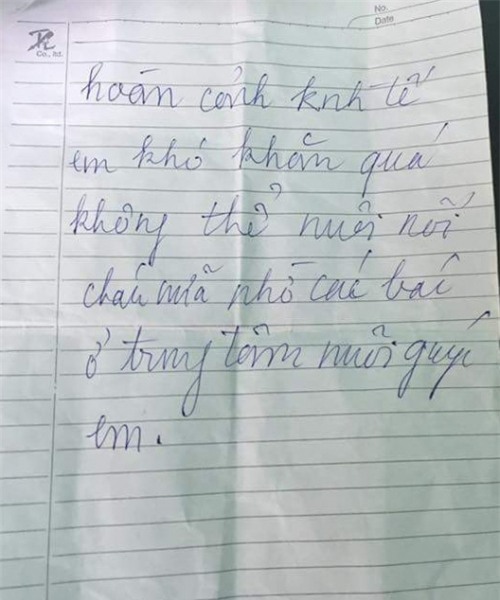 No.
Date
Co., ltd.
hoán cảnh knh tế
em khó khăn quá
không thể nuôi nỗi
cháu nữa nhò các bác
ở trung tâm nuôi guýi
em.